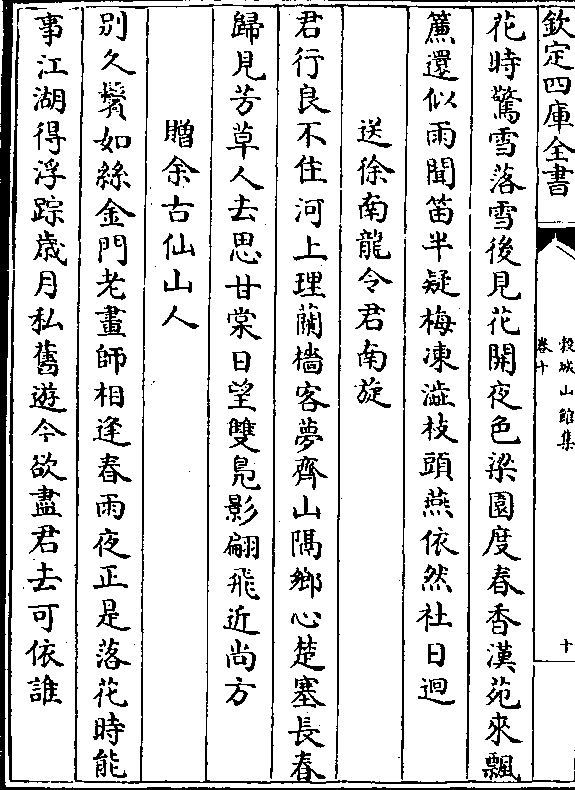 欽定四庫全書
穀城山館集
卷十
十
花時驚雪落雪後見花開夜色梁園度春香漢苑來飄
簾還似雨聞笛半疑梅凍澁枝頭燕依然社日迴
送徐南龍令君南旋
君行良不住河上理蘭檣客夢齊山隅鄉心楚塞長春
歸見芳草人去思甘棠日望雙鳧影翩飛近尚方
贈余古仙山人
別久鬢如絲金門老畫師相逢春雨夜正是落花時能
事江湖得浮踪歲月私舊遊今欲盡君去可依誰